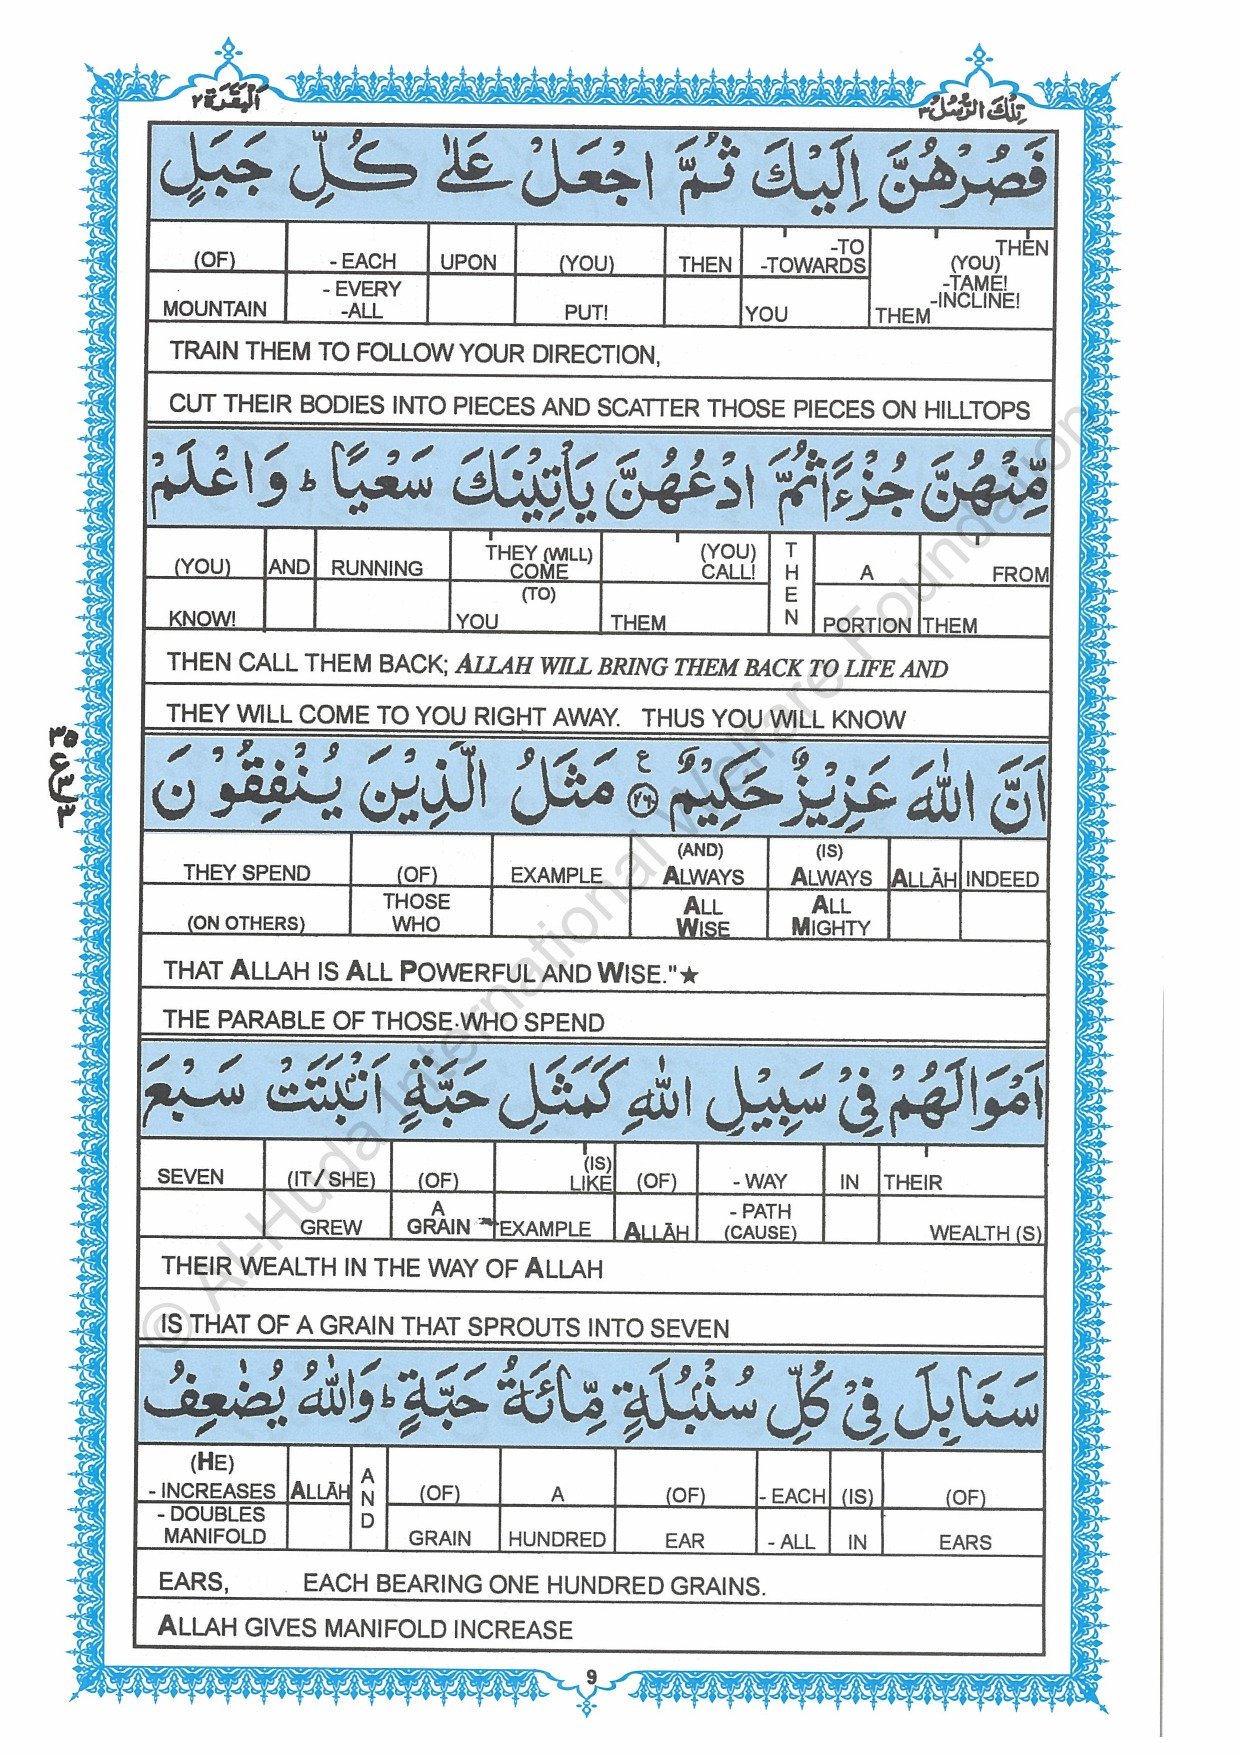 تِلْكَ الرُّسُلُ ٣
اَلْبَقَرَة ٢
فَصُرْهُنَّ اِلَيْكَ ثُمَّ اجْعَلْ عَلٰى كُلِّ جَبَلٍ
(OF) - EACH UPON (YOU) THEN -TO -TOWARDS THEN (YOU) -TAME! -INCLINE!
MOUNTAIN - EVERY -ALL PUT! YOU THEM
TRAIN THEM TO FOLLOW YOUR DIRECTION,
CUT THEIR BODIES INTO PIECES AND SCATTER THOSE PIECES ON HILLTOPS
مِّنْهُنَّ جُزْءًا ثُمَّ ادْعُهُنَّ يَأْتِيْنَكَ سَعْيًا ؕ وَاعْلَمْ
(YOU) AND RUNNING THEY (WILL) COME (YOU) CALL! THEN A FROM
KNOW! (TO) YOU THEM PORTION THEM
THEN CALL THEM BACK; ALLAH WILL BRING THEM BACK TO LIFE AND
THEY WILL COME TO YOU RIGHT AWAY. THUS YOU WILL KNOW
اَنَّ اللّٰهَ عَزِيْزٌ حَكِيْمٌ ٢٦٠ ع مَثَلُ الَّذِيْنَ يُنْفِقُوْنَ
THEY SPEND (OF) EXAMPLE (AND) ALWAYS (IS) ALWAYS ALLĀH INDEED
(ON OTHERS) THOSE WHO ALL WISE ALL MIGHTY
THAT ALLAH IS ALL POWERFUL AND WISE."★
THE PARABLE OF THOSE WHO SPEND
اَمْوَالَهُمْ فِيْ سَبِيْلِ اللّٰهِ كَمَثَلِ حَبَّةٍ اَنْۢبَتَتْ سَبْعَ
SEVEN (IT / SHE) (OF) (IS) LIKE (OF) - WAY IN THEIR
GREW A GRAIN EXAMPLE ALLĀH - PATH (CAUSE) WEALTH (S)
THEIR WEALTH IN THE WAY OF ALLAH
IS THAT OF A GRAIN THAT SPROUTS INTO SEVEN
سَنَابِلَ فِيْ كُلِّ سُنْۢبُلَةٍ مِّائَةُ حَبَّةٍ ؕ وَاللّٰهُ يُضٰعِفُ
(HE) - INCREASES ALLĀH AND (OF) A (OF) - EACH (IS) (OF)
- DOUBLES MANIFOLD GRAIN HUNDRED EAR - ALL IN EARS
EARS, EACH BEARING ONE HUNDRED GRAINS.
ALLAH GIVES MANIFOLD INCREASE
9
© Al-Huda International Welfare Foundation